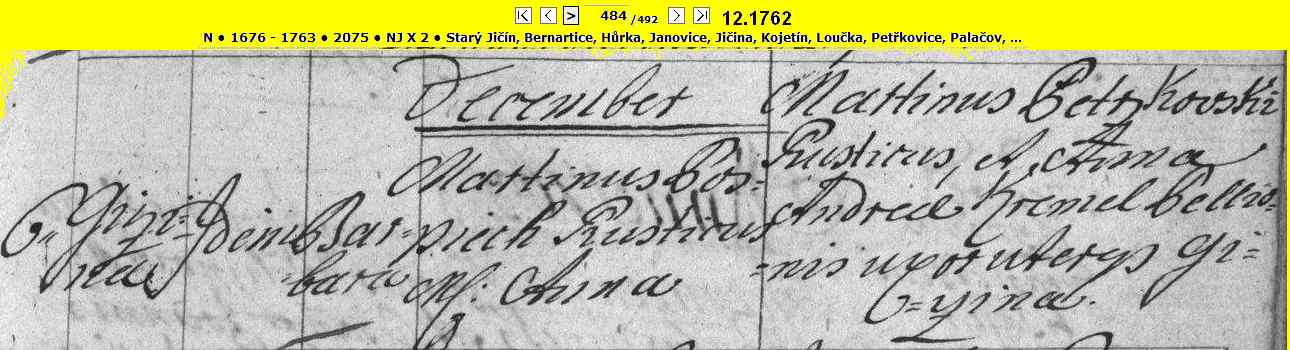 484 / 492 12.1762
N ● 1676 - 1763 ● 2075 ● NJ X 2 ● Starý Jičín, Bernartice, Hůrka, Janovice, Jičina, Kojetín, Loučka, Petřkovice, Palačov, ...
December
6 Gizi= Idem Bar= Martinus Pos=
na bara piech Rusticus
M: Anna
Martinus Petrzkovski
Rusticus, et Anna
Andreæ Kremel Pellio=
=nis uxor uterq Gi=
=zina.